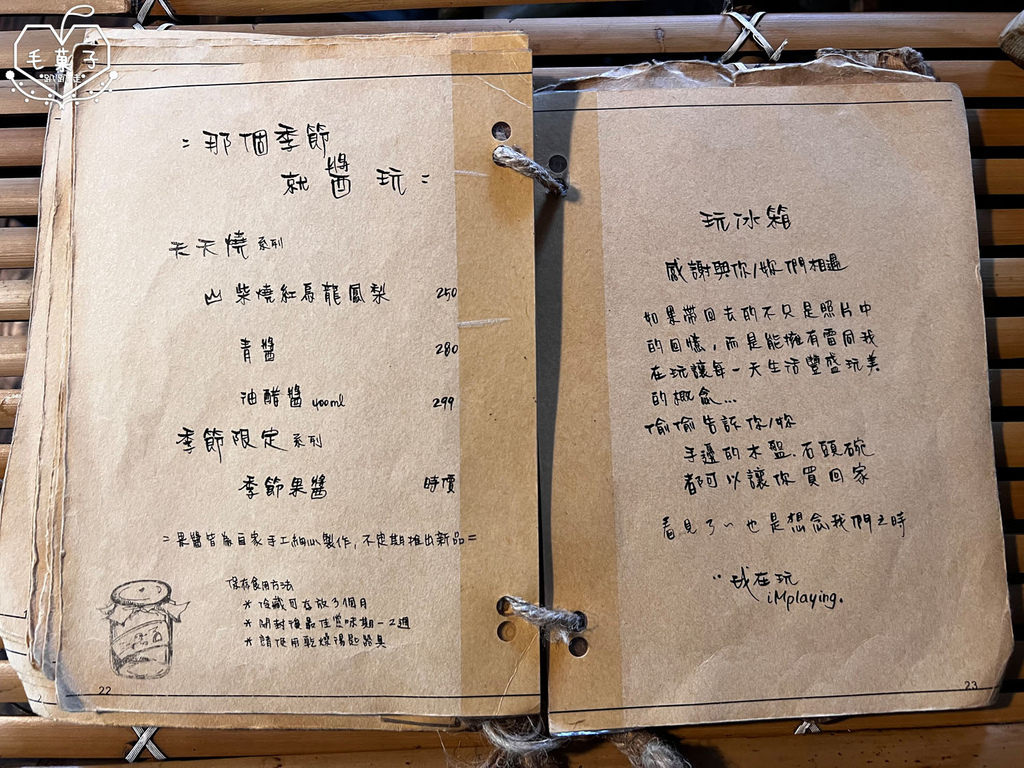 毛菓子
趴趴走
=那個季節
就醬玩=
天天燒系列
山柴燒紅烏龍鳳梨 250
青醬 280
油醋醬 400ml 299
季節限定系列
季節果醬 時價
=果醬皆為自家手工細心製作,不定期推出新品=
保存食用方法
*冷藏可存放3個月
*開封後最佳賞味期一~2週
*請使用乾燥湯匙器具
22
玩冰箱
感謝與你/妳們相遇
如果帶回去的不只是照片中
的回憶,而是能擁有雷同我
在玩讓每一天生活豐盛玩美
的概念...
偷偷告訴你/妳
手邊的木盤.石頭碗
都可以讓你買回家
看見了~也是想念我們之時
"我在玩
iMplaying.
23